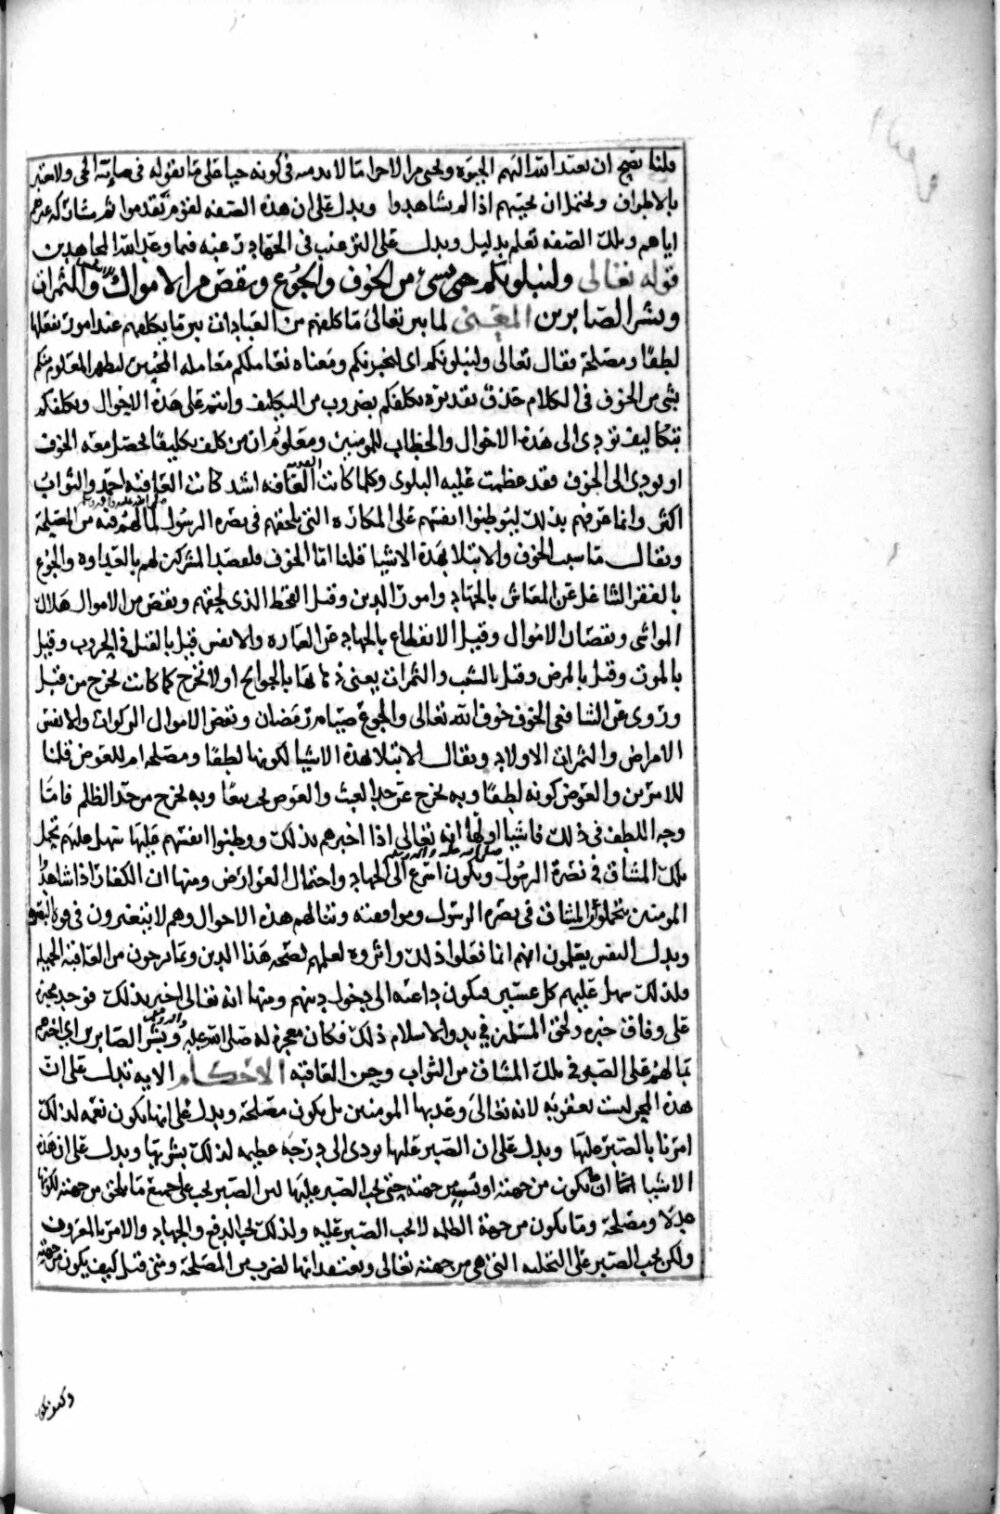 قلنا يصح ان يعيد الله اليهم الحيوة ويحيي من الاجزا ما لا بد منه في كونه حيا على ما نقوله في الحي ولا معتبر
بالاطراف ويحتمل ان يحييهم اذا لم يشاهدوا ويدل على ان هذه الصفه لقوم تقدموا ثم مشاركه غيرهم
اياهم في تلك الصفه تعلم بدليل ويدل على الترغيب في الجهاد رغبة فيما وعد الله المجاهدين
قوله تعالى ولنبلونكم بشيء من الخوف والجوع ونقص من الاموال والانفس والثمرات
وبشر الصابرين المعنى لما بين تعالى ما كلفهم من العبادات بين ما يكلفهم عند امور يفعلها
لطفا ومصلحة فقال تعالى ولنبلونكم اي لنختبرنكم ومعناه نعاملكم معامله المختبر ليظهر المعلوم منكم
بشي من الخوف في الكلام حذف تقديره نكلفكم بضروب من التكليف وانتم على هذه الاحوال ونكلفكم
بتكاليف تودي الى هذه الاحوال والخطاب للمومنين ومعلوم ان من كلف تكليفا يحصل معه الخوف
او يودي الى الخوف فقد عظمت عليه البلوى وكلما كانت العاقبه اشد كانت العاقبه احمد والثواب
اكثر وانما عرفهم بذلك ليوطنوا انفسهم على المكاره التي تلحقهم في نصره الرسول صلى الله عليه واله وسلم لما لهم فيه من المصلحة
ويقال ما سبب الخوف والابتلا بهذه الاشيا قلنا اما الخوف فلقصد المشركين لهم بالعداوه والجوع
بالفقر الشاغل عن المعاش بالجهاد وامور الدين وقيل القحط الذي لحقهم ونقص من الاموال هلاك
المواشي ونقصان الاموال وقيل الانقطاع بالجهاد عن العماره والانفس قيل بالقتل في الحروب وقيل
بالموت وقيل بالمرض وقيل بالشيب والثمرات يعني ذهابها بالجوايح او لا تخرج كما كانت تخرج من قبل
وروى عن الشافعي الخوف خوف الله تعالى والجوع صيام رمضان ونقص الاموال الزكوات والانفس
الامراض والثمرات الاولاد ويقال الابتلا بهذه الاشيا لكونها لطفا ومصلحه ام للعوض قلنا
للامرين والعوض كونه لطفا وبه يخرج عن حد العبث والعوض يجي تبعا وبه يخرج من حد الظلم فاما
وجه اللطف في ذلك فاشيا اولها انه تعالى اذا اخبرهم بذلك ووطنوا انفسهم عليها سهل عليهم تحمل
تلك المشاق في نصرة الرسول صلى الله عليه واله وسلم ويكون اسرع الى الجهاد واحتمال العوارض ومنها ان الكفار اذا شاهدوا
المومنين يتحملوا المشاق في نصره الرسول وموافقته وتنالهم هذه الاحوال وهم لا يتغيرون في قوة البصيرة
وبذل النفس يعلمون انهم انما فعلوا ذلك واثروه لعلمهم بصحه هذا الدين وما يرجون من العاقبة الجميله
ولذلك سهل عليهم كل عسير فيكون داعيه الى دخول دينهم ومنها انه تعالى اخبر بذلك فوجد مخبره
على وفاق خبره ولحق المسلمين في بدو الاسلام ذلك فكان معجزة له صلى الله عليه واله وسلم وبشر الصابرين اي اخبرهم
بما لهم على الصبر في تلك المشاق من الثواب وحسن العاقبه الاحكام الايه تدل على ان
هذه المحن ليست بعقوبه لانه تعالى وعد بها المومنين بل يكون مصلحة ويدل على انها يكون نعمه لذلك
امرنا بالصبر عليها ويدل على ان الصبر عليها يودي الى درجه عظيمه لذلك بشر بها ويدل على ان هذه
الاشيا انما ان يكون من جهته او بسبب من جهته حتى يجب الصبر عليها ليس الصبر يجب على جميع ما يلحق من جهته لكونها
عدلا ومصلحة وما يكون من جهة الظلمه لا يجب الصبر عليه ولذلك يجب الدفع والجهاد والامر بالمعروف
ولكن يجب الصبر على التخليه التي هي من جهته تعالى ويعتقد انها لضرب من المصلحة ومتى قيل كيف يكون من جهته
وكيف يكون